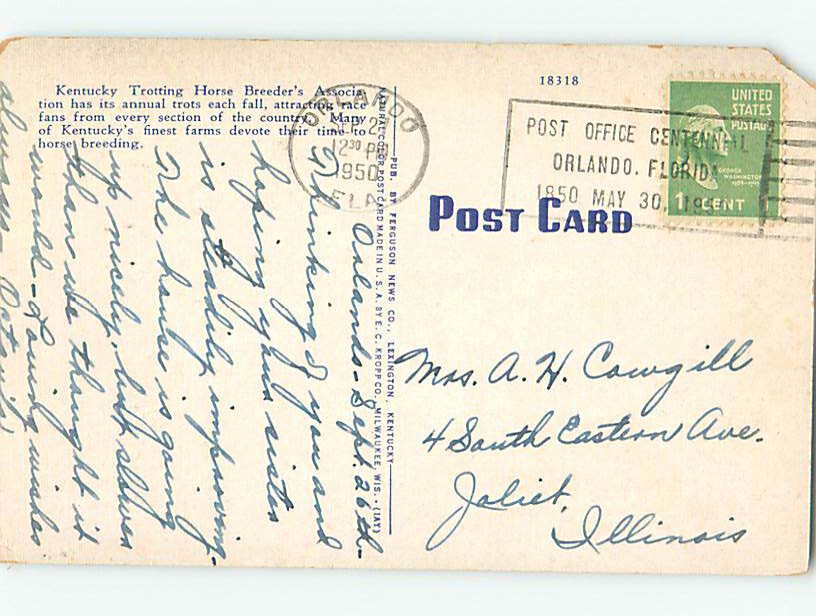 Kentucky Trotting Horse Breeder's Associa-
tion has its annual trots each fall, attracting race
fans from every section of the country. Many
of Kentucky's finest farms devote their time to
horse breeding.
18318
ORLANDO
SEP 2
12 30 PM
1950
FLA
POST OFFICE CENTENNIAL
ORLANDO, FLORIDA
1850 MAY 30, 19
UNITED
STATES
POSTAGE
GEORGE
WASHINGTON
1 CENT
POST CARD
PUB. BY FERGUSON NEWS CO., LEXINGTON, KENTUCKY
NATURAL COLOR POST CARD MADE IN U. S. A. BY E. C. KROPP CO., MILWAUKEE, WIS. - (1AY)
Orlando - Sept. 26th -
Thinking of you and
hoping your sister
is steadily improving.
The house is going
up nicely, but slower
than we thought it
would - Loving wishes
always -
Mrs. A. H. Cowgill
4 South Eastern Ave.
Joliet,
Illinois